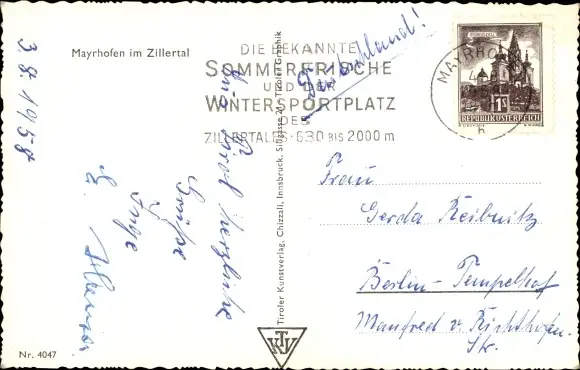 Mayrhofen im Zillertal
3.8.1958
Aus Tirol herzliche
Grüße
Inge
Nr. 4047
Tiroler Kunstverlag, Chizzali, Innsbruck, Sillgasse 20, Tiroler Graphik
KTV
DIE BEKANNTE
SOMMERFRISCHE
UND DER
WINTERSPORTPLATZ
DES
ZILLERTALES · 630 BIS 2000 m
Deutschland!
MAYRHOFEN
h
MARIAZELL
1S
REPUBLIK ÖSTERREICH
Frau
Gerda Reibnitz
Berlin-Tempelhof
Manfred v. Richthofen-
Str.